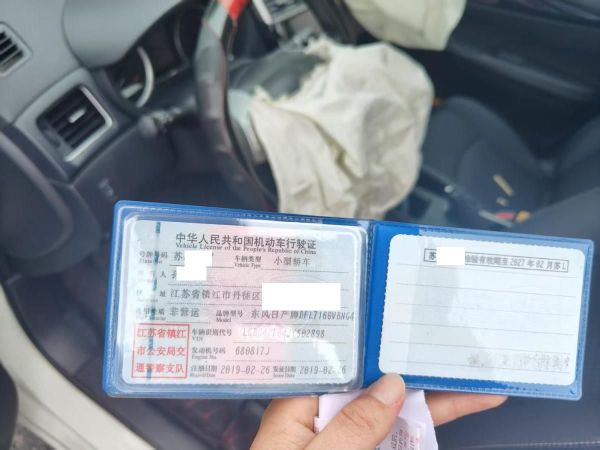 中华人民共和国机动车行驶证
Vehicle License of the People's Republic of China
号牌号码 苏 车辆类型 小型轿车
Plate No. Vehicle Type
住 址 江苏省镇江市丹徒区
使用性质 非营运 品牌型号 东风日产牌DFL7166VBNG4
Model
江苏省镇江
市公安局交
通警察支队
车辆识别代号
VIN
发动机号码 680817J
Engine No.
注册日期 2019-02-26 发证日期 2019-02-26
Register Date Issue Date
苏 检验有效期至2027年02月苏L